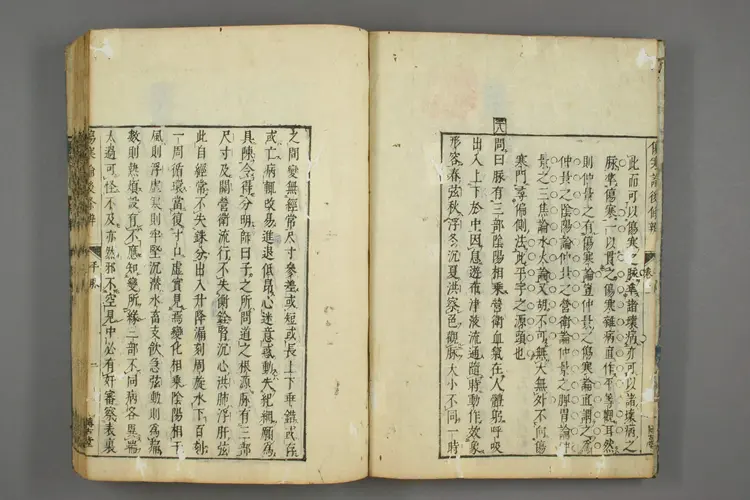 傷寒論後條辨
此而可以傷寒之脈準諸壞病亦可以諸壞病之
脈準傷寒一以貫之傷寒雜病直作平等觀耳然
則仲景之有傷寒論豈仲景之傷寒論直謂之
仲景之陰陽論仲景之營衛論仲景之脾胃論仲
景之三焦論水火論又胡不可無大無外不向傷
寒門尋偏側法此平字之源頭也
問曰脈有三部陰陽相乘營衛血氣在人體躬呼吸
出入上下於中因息遊布津液流通隨時動作效象
形容春弦秋浮冬沉夏洪察色觀脈大小不同一時
之間變無經常尺寸參差或短或長上下乖錯或存
或亡病輒改易進退低昂心迷意惑動失紀綱願為
具陳令得分明師曰子之所問道之根源脈有三部
尺寸及關營衛流行不失衡銓腎沉心洪肺浮肝弦
此自經常不失銖分出入升降漏刻周旋水下百刻
一周循環當復寸口虛實見焉變化相乘陰陽相干
風則浮虛寒則牢堅沉潛水畜支飲急弦動則為痛
數則熱煩設有不應知變所緣三部不同病各異端
太過可怪不及亦然邪不空見中必有奸審察表裏
傷寒論後條辨
平脈